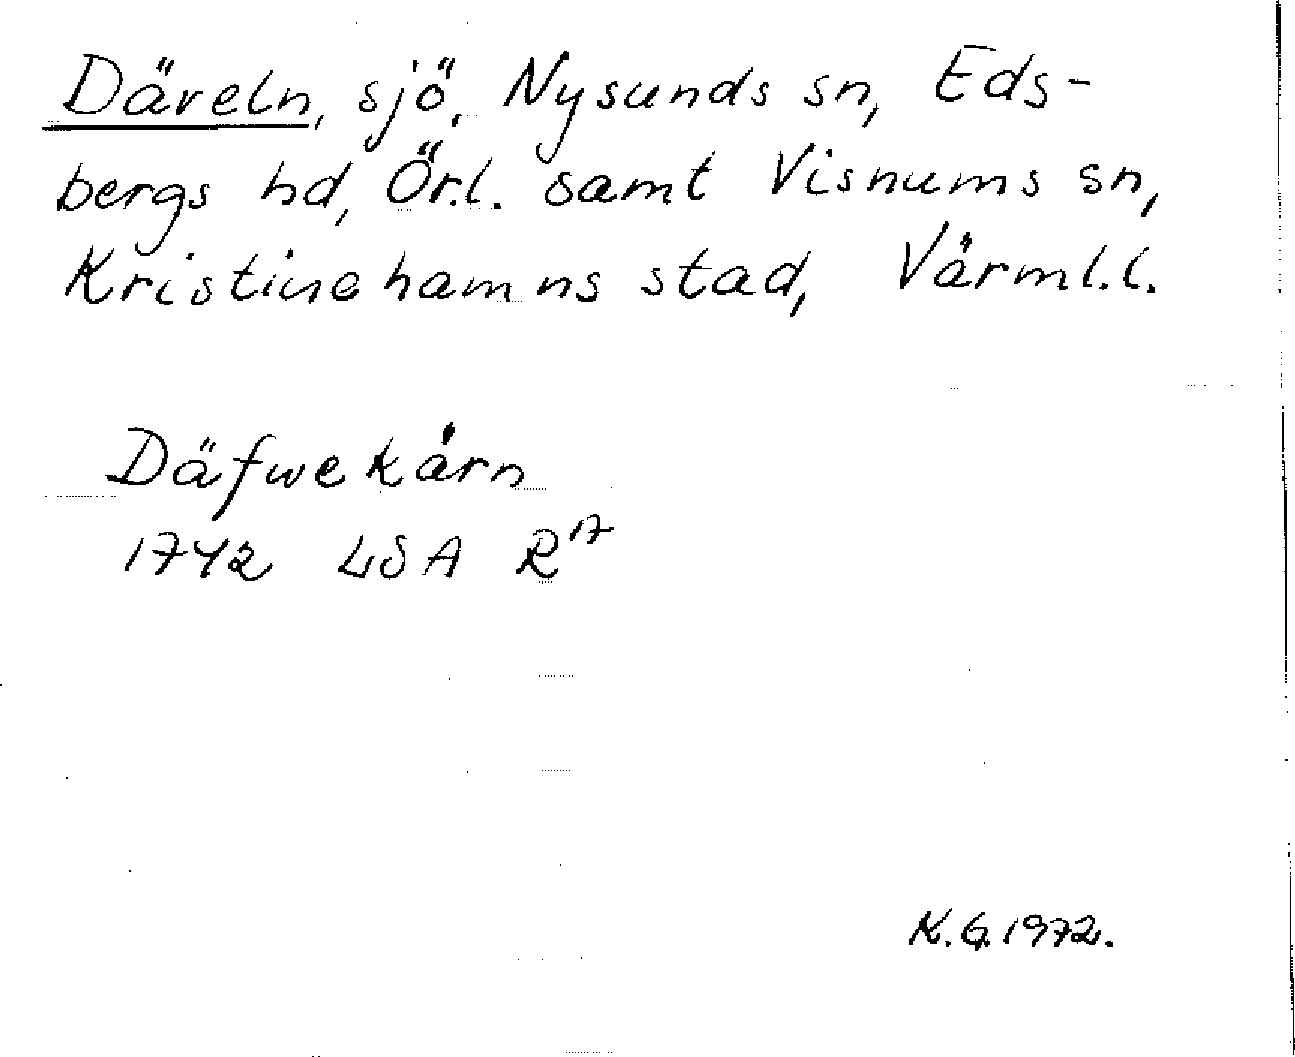 Däveln, sjö, Nysunds sn, Eds-
bergs hd, Ör.l. samt Visnums sn,
Kristinehamns stad, Värml.l.
Däfwekärn
1742 LSA R17
K.G. 1972.